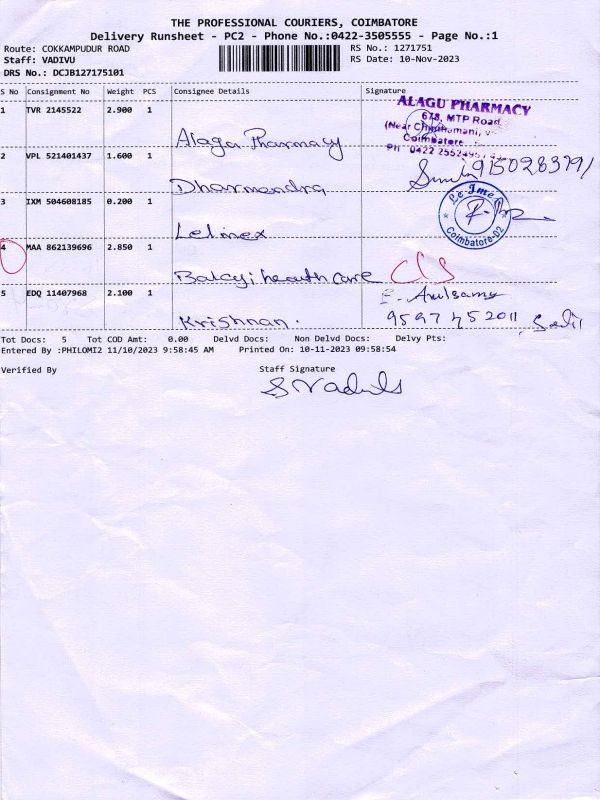 THE PROFESSIONAL COURIERS, COIMBATORE
Delivery Runsheet - PC2 - Phone No.:0422-3505555 - Page No.:1
Route: COKKAMPUDUR ROAD RS No.: 1271751
Staff: VADIVU RS Date: 10-Nov-2023
DRS No.: DCJB127175101
S No Consignment No Weight PCS Consignee Details Signature
1 TVR 2145522 2.900 1 Alagu Pharmacy
ALAGU PHARMACY
678, MTP Road,
(Near
Coimbatore
Ph : 0422
2 VPL 521401437 1.600 1 Dharmendra
3 IXM 504608185 0.200 1 Lelmex
Coimbatore-02
4 MAA 862139696 2.850 1 Balaji health care
5 EDQ 11407968 2.100 1 Krishnan.
E. Arulsamy
9597452011
Tot Docs: 5 Tot COD Amt: 0.00 Delvd Docs: Non Delvd Docs: Delvy Pts:
Entered By :PHILOMI2 11/10/2023 9:58:45 AM Printed On: 10-11-2023 09:58:54
Verified By Staff Signature